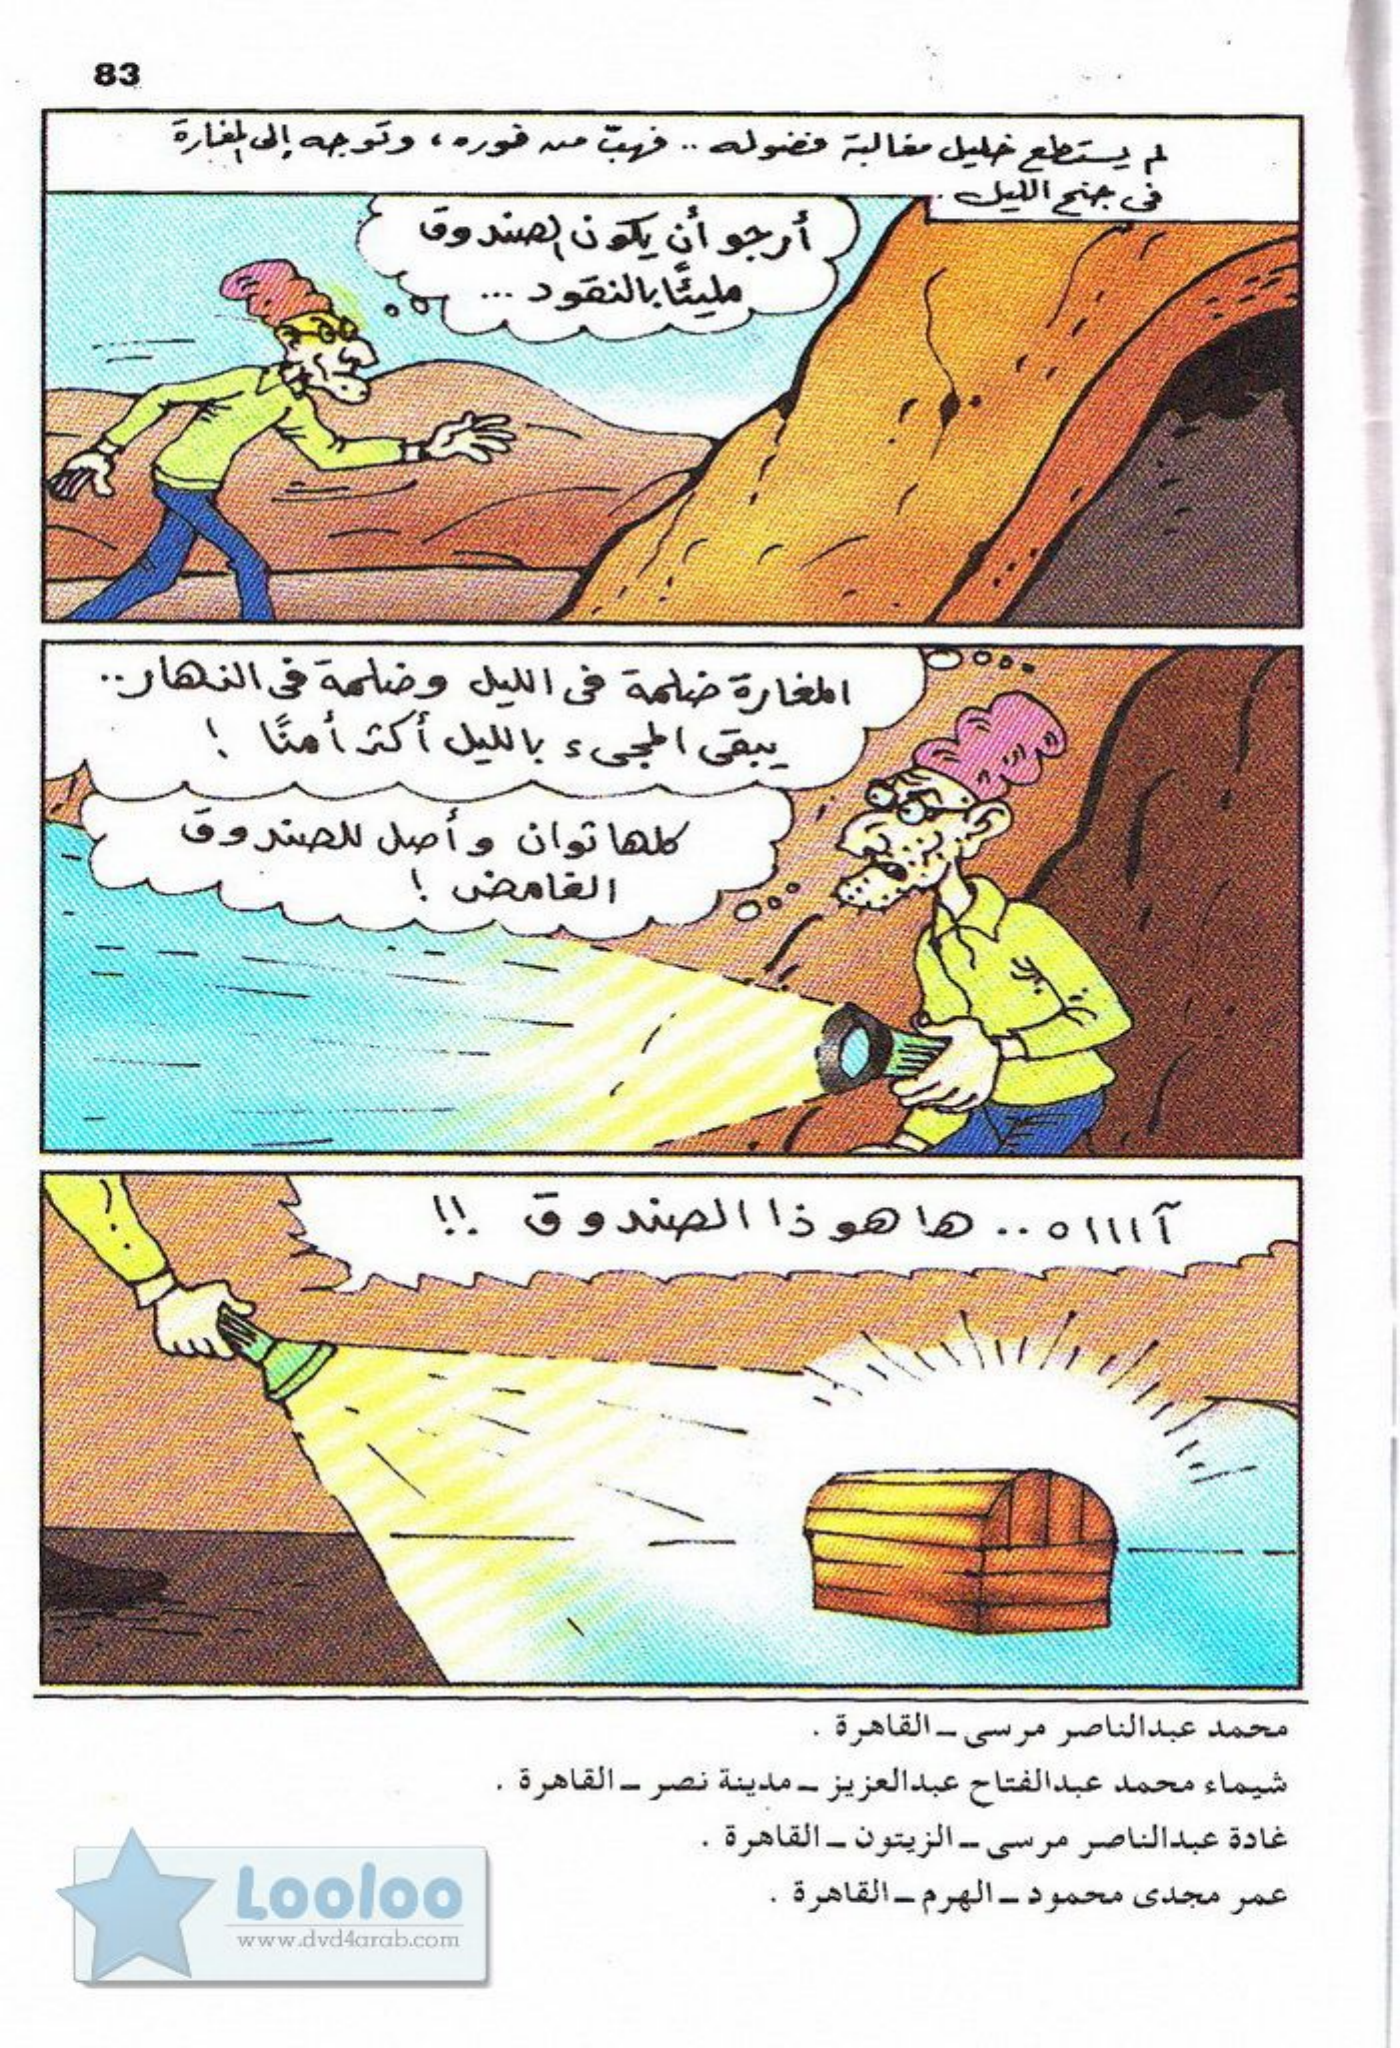 83
لم يستطع خليل مغالبة فضوله .. فهبّ من فوره ، وتوجه إلى المغارة
فى جنح الليل .
أرجو أن يكون الصندوق
مليئًا بالنقود ...
المغارة ضلمة فى الليل وضلمة فى النهار..
يبقى المجىء بالليل أكثر أمنًا !
كلها ثوان وأصل للصندوق
الغامض !
آااااه .. ها هو ذا الصندوق !!
محمد عبدالناصر مرسى ــ القاهرة .
شيماء محمد عبدالفتاح عبدالعزيز ــ مدينة نصر ــ القاهرة .
غادة عبدالناصر مرسى ــ الزيتون ــ القاهرة .
عمر مجدى محمود ــ الهرم ــ القاهرة .
Looloo
www.dvd4arab.com